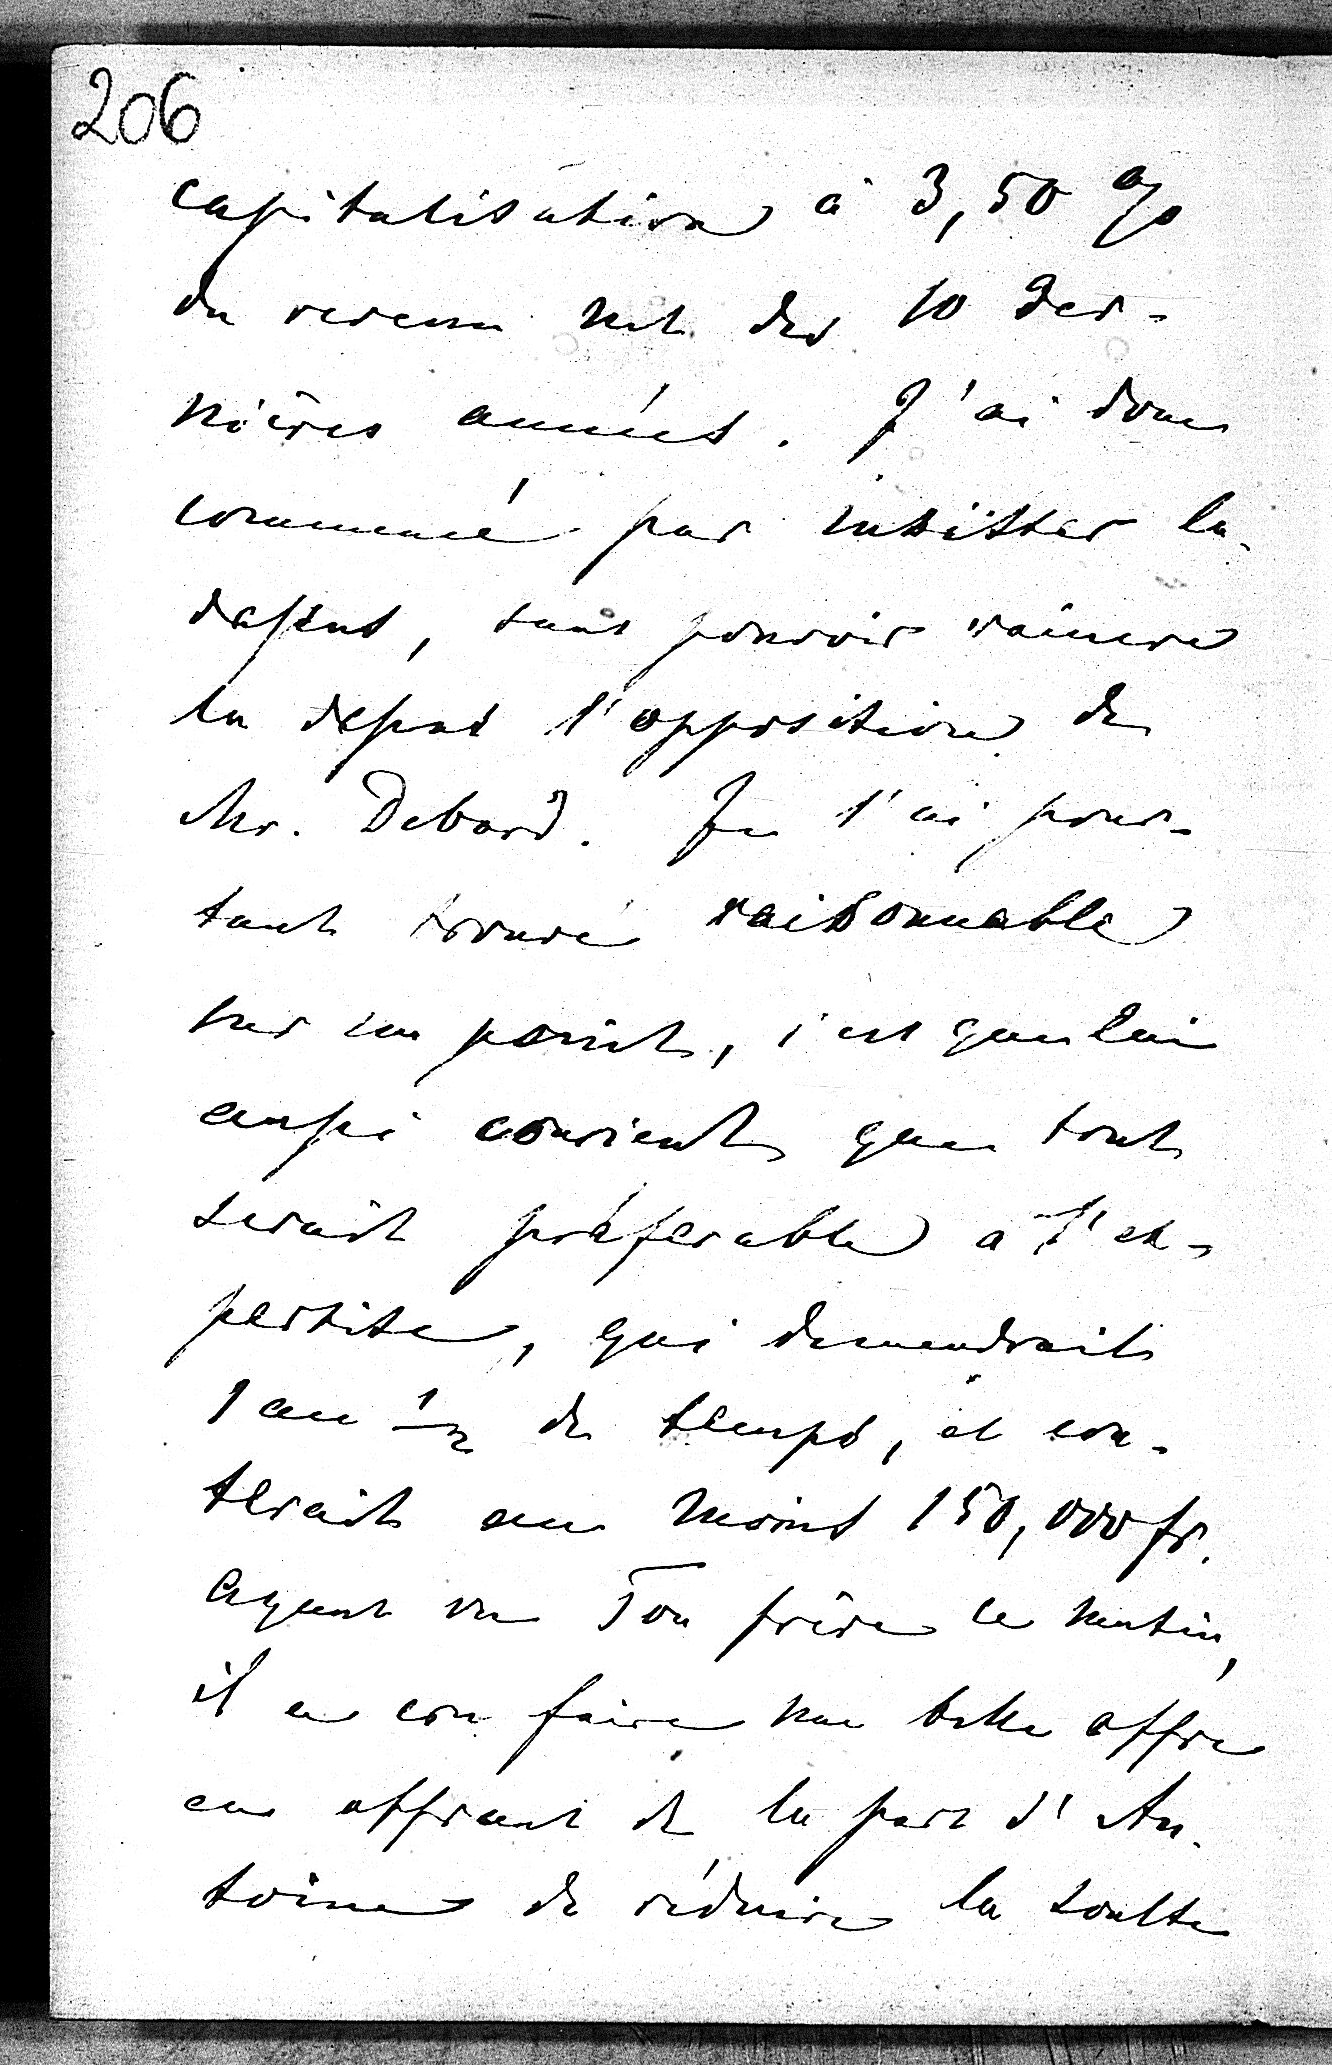 206
capitalisation à 3,50 %
du revenu net des 10 der-
nières années. J'ai donc
commencé par insister la-
dessus, sans pouvoir vaincre
la dessus l'opposition de
Mr. Debord. Je l'ai pour-
tant trouvé raisonnable
sur un point, c'est que lui
aussi convient que tout
serait préferable à l'ex-
pertise, qui demandrait
1 an 1/2 de temps, et cou-
terait au moins 150,000 fr.
Ayant vu Ton frère ce matin,
il a cru faire une belle offre
en offrant de la part d'An-
toine de réduire la soulte